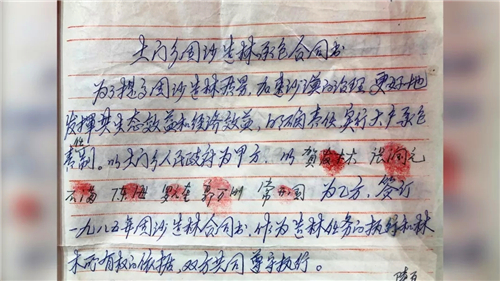 土门乡固沙造林承包合同书
为了提高固沙造林质量,加速沙漠的治理,更好地
发挥其生态效益和经济效益,明确责任实行大户承包
责制。以土门乡人民政府为甲方,以 贺发 张润元
海 罗奎 郭万 常 国 为乙方,签订
一九八五年固沙造林合同书,作为造林业务的执行和林
木所有权的依据,双方共同遵守执行。